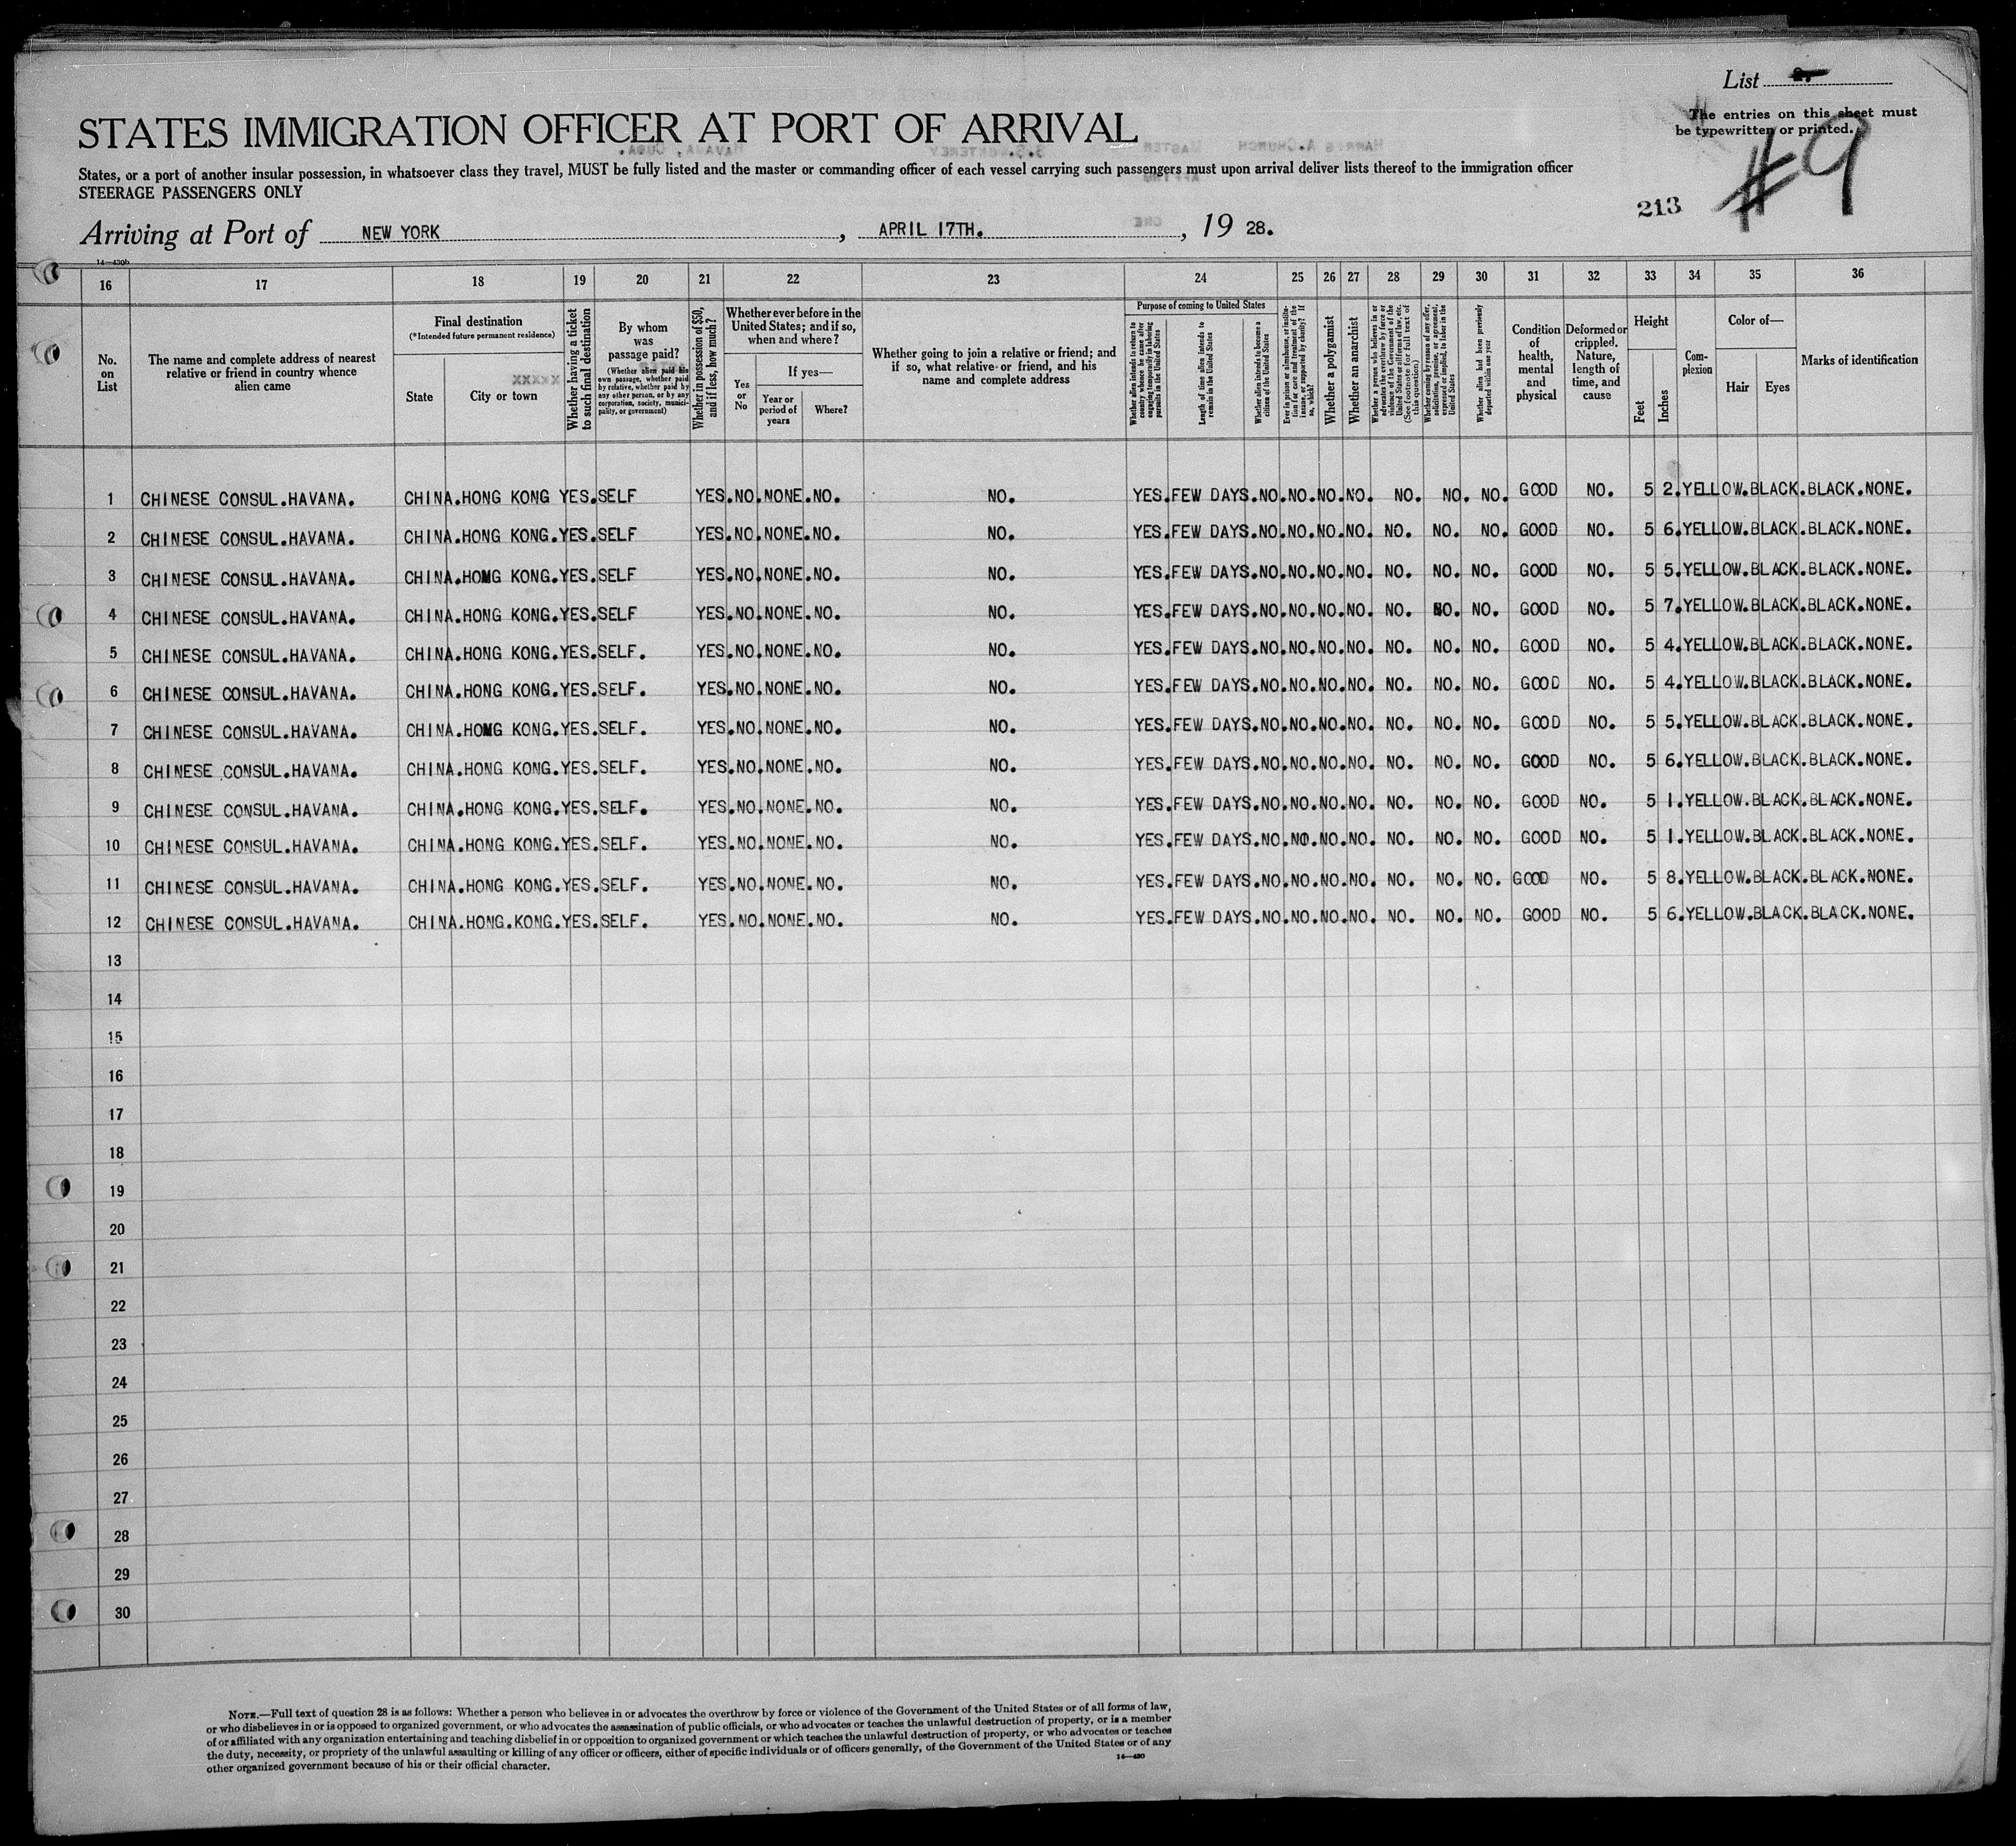 List 2.
The entries on this sheet must
be typewritten or printed.
#9
213
STATES IMMIGRATION OFFICER AT PORT OF ARRIVAL
States, or a port of another insular possession, in whatsoever class they travel, MUST be fully listed and the master or commanding officer of each vessel carrying such passengers must upon arrival deliver lists thereof to the immigration officer
STEERAGE PASSENGERS ONLY
Arriving at Port of NEW YORK, APRIL 17TH., 19 28.
14—430b
16 17 18 19 20 21 22 23 24 25 26 27 28 29 30 31 32 33 34 35 36
No. on List
The name and complete address of nearest relative or friend in country whence alien came
Final destination
(*Intended future permanent residence)
State
City or town
Whether having a ticket to such final destination
By whom was passage paid?
(Whether alien paid his own passage, whether paid by relative, whether paid by any other person, or by any corporation, society, municipality, or government)
Whether in possession of $50, and if less, how much?
Whether ever before in the United States; and if so, when and where?
Yes or No
If yes—
Year or period of years
Where?
Whether going to join a relative or friend; and if so, what relative or friend, and his name and complete address
Purpose of coming to United States
Whether alien intends to return to country whence he came after engaging temporarily in laboring pursuits in the United States
Length of time alien intends to remain in the United States
Whether alien intends to become a citizen of the United States
Ever in prison or almshouse, or institution for care and treatment of the insane, or supported by charity? If so, which?
Whether a polygamist
Whether an anarchist
Whether a person who believes in or advocates the overthrow by force or violence of the Government of the United States or all forms of law, etc. (See footnote for full text of this question.)
Whether coming by reason of any offer, solicitation, promise, or agreement, expressed or implied, to labor in the United States
Whether alien had been previously deported within one year
Condition of health, mental and physical
Deformed or crippled. Nature, length of time, and cause
Height
Feet
Inches
Complexion
Color of—
Hair
Eyes
Marks of identification
1 CHINESE CONSUL.HAVANA. CHINA.HONG KONG YES.SELF YES.NO.NONE.NO. NO. YES.FEW DAYS.NO.NO.NO.NO. NO. NO. NO. GOOD NO. 5 2.YELLOW.BLACK.BLACK.NONE.
2 CHINESE CONSUL.HAVANA. CHINA.HONG KONG.YES.SELF YES.NO.NONE.NO. NO. YES.FEW DAYS.NO.NO.NO.NO. NO. NO. NO. GOOD NO. 5 6.YELLOW.BLACK.BLACK.NONE.
3 CHINESE CONSUL.HAVANA. CHINA.HONG KONG.YES.SELF YES.NO.NONE.NO. NO. YES.FEW DAYS.NO.NO.NO.NO. NO. NO. NO. GOOD NO. 5 5.YELLOW.BLACK.BLACK.NONE.
4 CHINESE CONSUL.HAVANA. CHINA.HONG KONG.YES.SELF YES.NO.NONE.NO. NO. YES.FEW DAYS.NO.NO.NO.NO. NO. NO. NO. GOOD NO. 5 7.YELLOW.BLACK.BLACK.NONE.
5 CHINESE CONSUL.HAVANA. CHINA.HONG KONG.YES.SELF. YES.NO.NONE.NO. NO. YES.FEW DAYS.NO.NO.NO.NO. NO. NO. NO. GOOD NO. 5 4.YELLOW.BLACK.BLACK.NONE.
6 CHINESE CONSUL.HAVANA. CHINA.HONG KONG.YES.SELF. YES.NO.NONE.NO. NO. YES.FEW DAYS.NO.NO.NO.NO. NO. NO. NO. GOOD NO. 5 4.YELLOW.BLACK.BLACK.NONE.
7 CHINESE CONSUL.HAVANA. CHINA.HONG KONG.YES.SELF. YES.NO.NONE.NO. NO. YES.FEW DAYS.NO.NO.NO.NO. NO. NO. NO. GOOD NO. 5 5.YELLOW.BLACK.BLACK.NONE.
8 CHINESE CONSUL.HAVANA. CHINA.HONG KONG.YES.SELF. YES.NO.NONE.NO. NO. YES.FEW DAYS.NO.NO.NO.NO. NO. NO. NO. GOOD NO. 5 6.YELLOW.BLACK.BLACK.NONE.
9 CHINESE CONSUL.HAVANA. CHINA.HONG KONG.YES.SELF. YES.NO.NONE.NO. NO. YES.FEW DAYS.NO.NO.NO.NO. NO. NO. NO. GOOD NO. 5 1.YELLOW.BLACK.BLACK.NONE.
10 CHINESE CONSUL.HAVANA. CHINA.HONG KONG.YES.SELF. YES.NO.NONE.NO. NO. YES.FEW DAYS.NO.NO.NO.NO. NO. NO. NO. GOOD NO. 5 1.YELLOW.BLACK.BLACK.NONE.
11 CHINESE CONSUL.HAVANA. CHINA.HONG KONG.YES.SELF. YES.NO.NONE.NO. NO. YES.FEW DAYS.NO.NO.NO.NO. NO. NO. NO. GOOD NO. 5 8.YELLOW.BLACK.BLACK.NONE.
12 CHINESE CONSUL.HAVANA. CHINA.HONG.KONG.YES.SELF. YES.NO.NONE.NO. NO. YES.FEW DAYS.NO.NO.NO.NO. NO. NO. NO. GOOD NO. 5 6.YELLOW.BLACK.BLACK.NONE.
13
14
15
16
17
18
19
20
21
22
23
24
25
26
27
28
29
30
NOTE.—Full text of question 28 is as follows: Whether a person who believes in or advocates the overthrow by force or violence of the Government of the United States or of all forms of law,
or who disbelieves in or is opposed to organized government, or who advocates the assassination of public officials, or who advocates or teaches the unlawful destruction of property, or is a member
of or affiliated with any organization entertaining and teaching disbelief in or opposition to organized government or which teaches the unlawful destruction of property, or who advocates or teaches
the duty, necessity, or propriety of the unlawful assaulting or killing of any officer or officers, either of specific individuals or of officers generally, of the Government of the United States or of any
other organized government because of his or their official character.
14—430